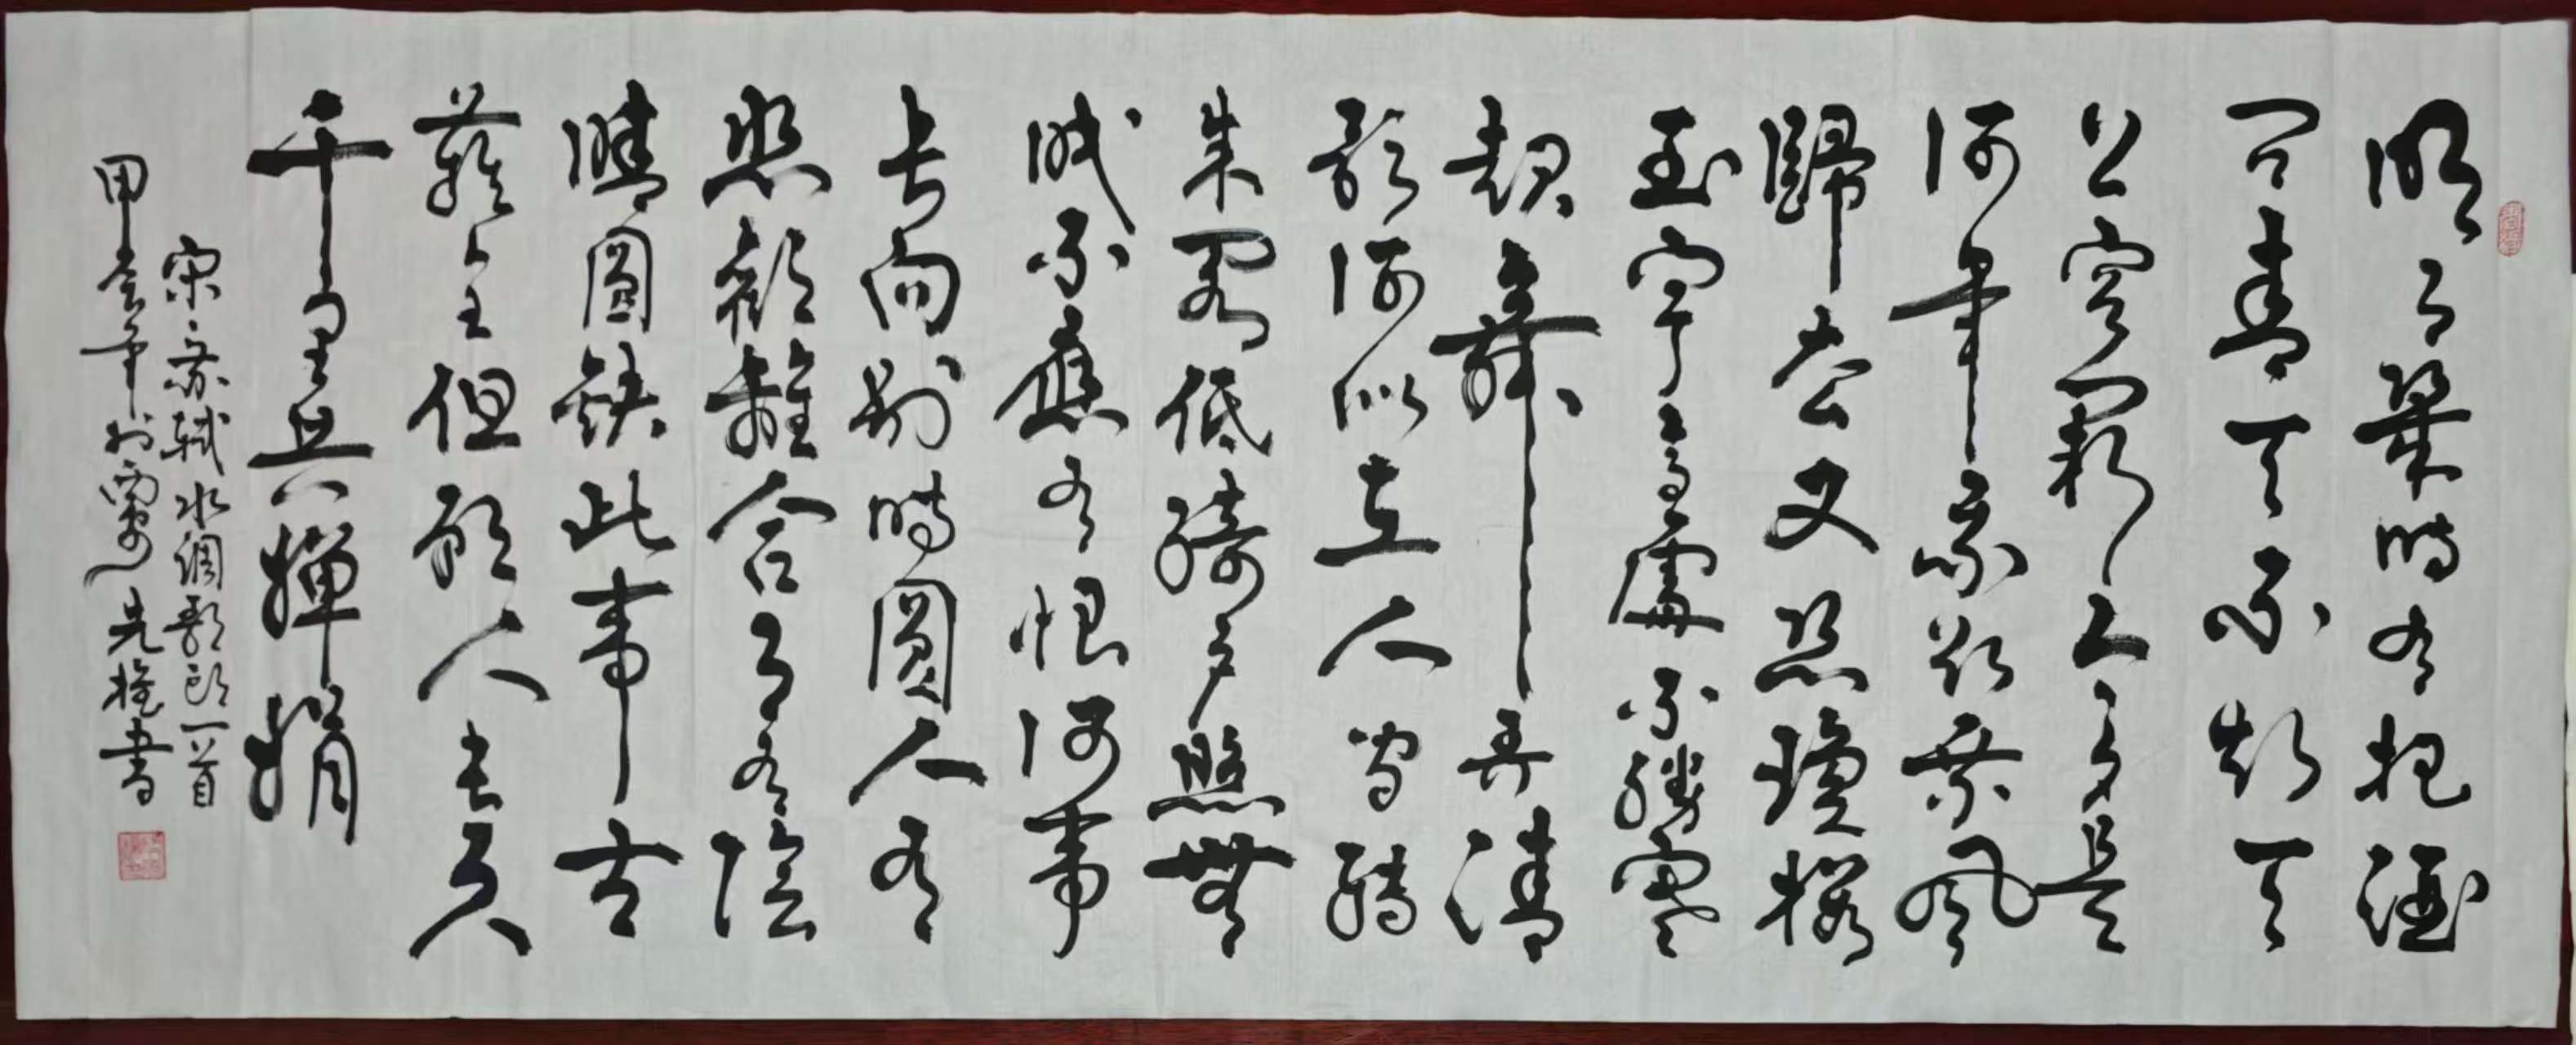 明月幾時有把酒
问青天不知天
上宫闕今夕是
何年我欲乘風
歸去又恐瓊樓
玉宇高處不勝寒
起舞弄清
影何似在人间轉
朱阁低绮户照無
眠不應有恨何事
長向别時圓人有
悲歡離合月有陰
晴圓缺此事古
難全但願人長久
千里共嬋娟
宋苏軾水调歌头一首
甲辰年於 先 書